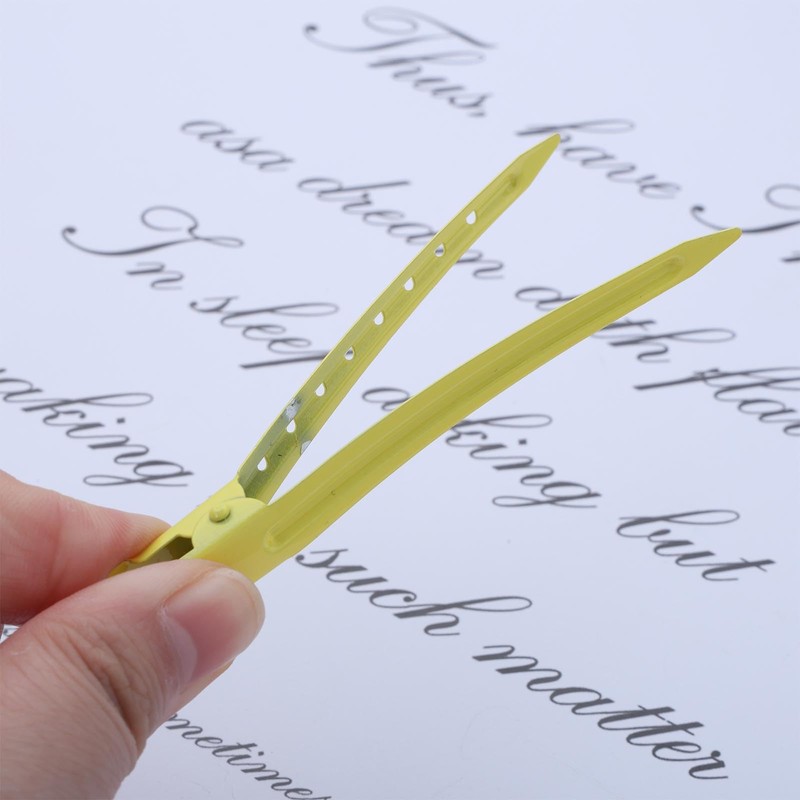 Thus, have
asa dream doth flat
In sleep a king but
waking such matter
sometimes